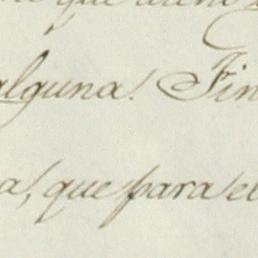 que
alguna. Fin
a, que para el